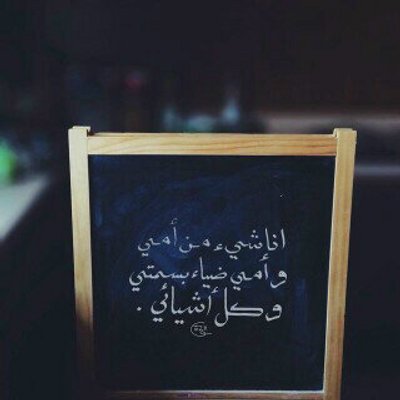 انا شيء من أمي
وأمي ضياء بسمتي
وكل أشيائي .